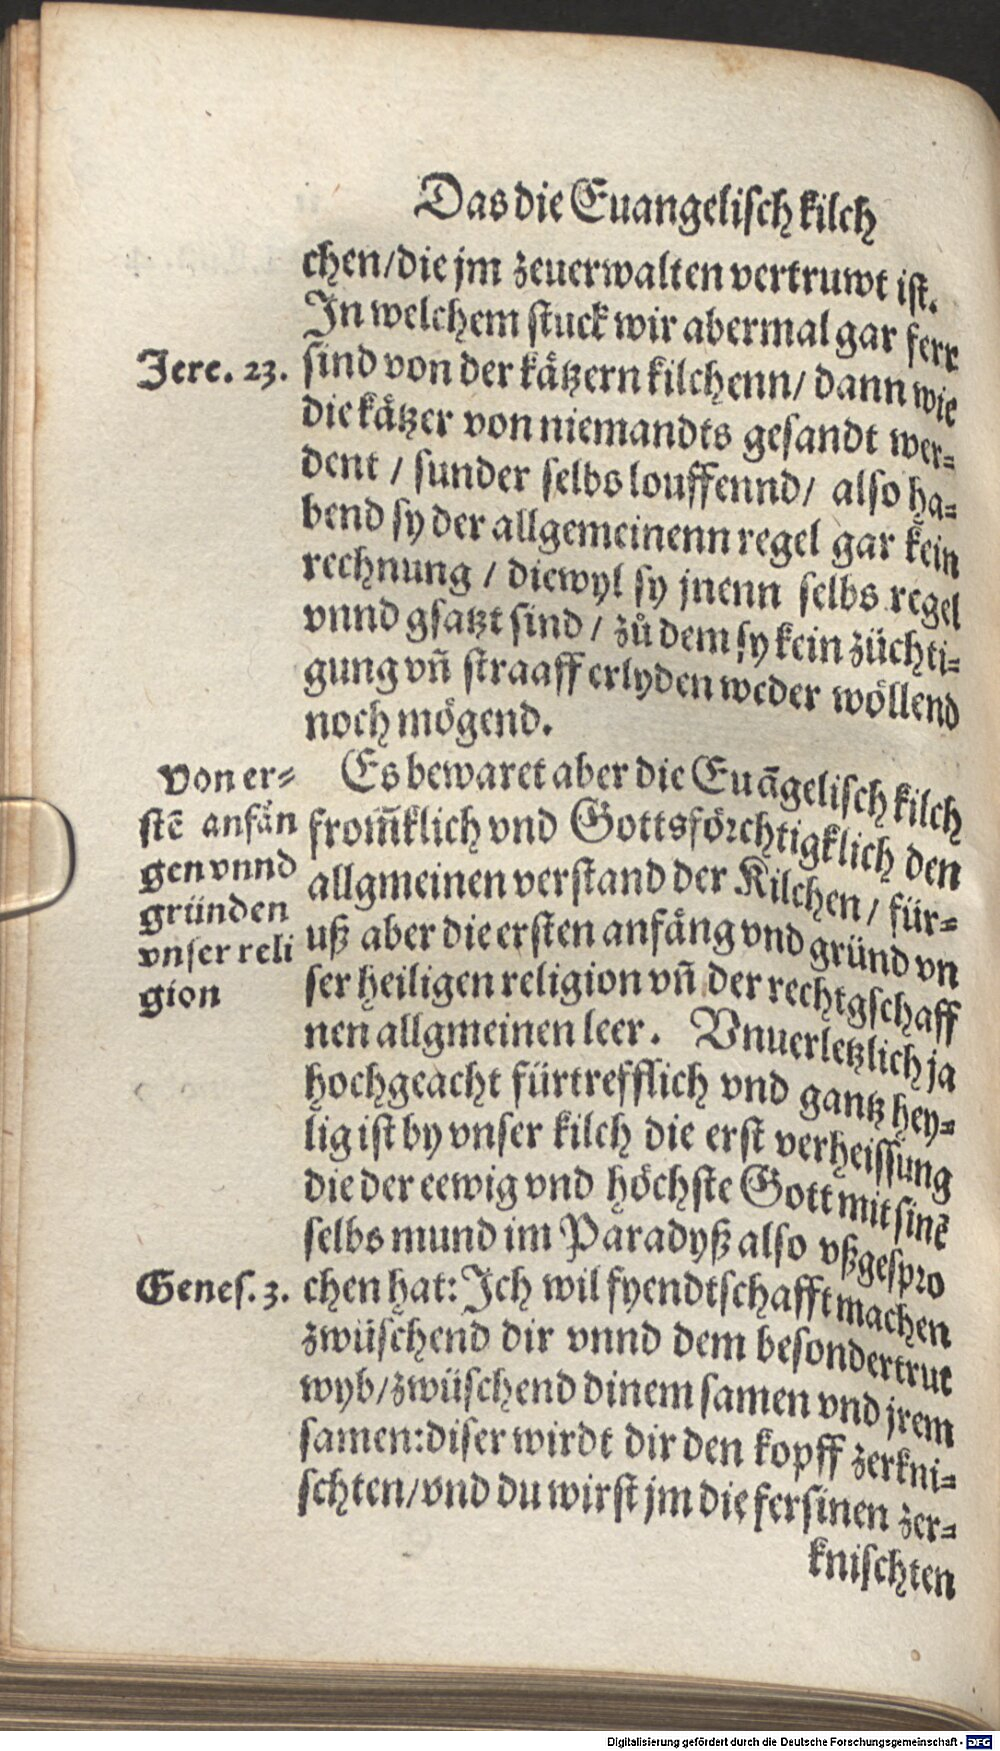 Das die Euangelisch kilch
chen/die jm zeuerwalten vertruwt ist.
In welchem stuck wir abermal gar ferr
Jere. 23.
sind von der kätzern kilchenn/ dann wie
die kätzer von niemandts gesandt wer⸗
dent / sunder selbs louffennd/ also ha⸗
bend sy der allgemeinenn regel gar kein
rechnung / diewyl sy jnenn selbs regel
vnnd gsatzt sind / zů dem sy kein züchti⸗
gung vñ straaff erlyden weder wöllend
noch mögend.
Von er⸗
stē anfän
gen vnnd
gründen
vnser reli
gion
Es bewaret aber die Euāgelisch kilch
from̄klich vnd Gottsförchtigklich den
allgmeinen verstand der Kilchen / für⸗
uß aber die ersten anfäng vnd gründ vn
ser heiligen religion vñ der rechtgschaff
nen allgmeinen leer. Vnuerletzlich ja
hochgeacht fürtrefflich vnd gantz hey⸗
lig ist by vnser kilch die erst verheissung
die der eewig vnd höchste Gott mit sinē
selbs mund im Paradyß also vßgespro
Genes. 3.
chen hat: Ich wil fyendtschafft machen
zwüschend dir vnnd dem besondertrut
wyb/zwüschend dinem samen vnd jrem
samen: diser wirdt dir den kopff zerkni⸗
schten/vnd du wirst jm die fersinen zer⸗
knischten
Digitalisierung gefördert durch die Deutsche Forschungsgemeinschaft - DFG